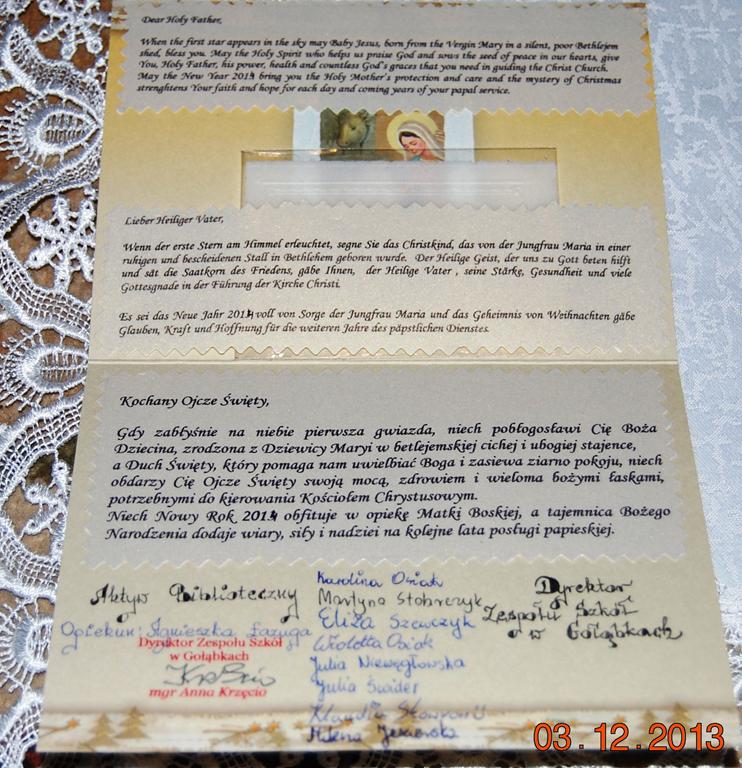 Dear Holy Father,
When the first star appears in the sky may Baby Jesus, born from the Vergin Mary in a silent, poor Bethlejem
shed, bless you. May the Holy Spirit who helps us praise God and sows the seed of peace in our hearts, give
You, Holy Father, his power, health and countless God's graces that you need in guiding the Christ Church.
May the New Year 2014 bring you the Holy Mother's protection and care and the mystery of Christmas
strenghtens Your faith and hope for each day and coming years of your papal service.
Lieber Heiliger Vater,
Wenn der erste Stern am Himmel erleuchtet, segne Sie das Christkind, das von der Jungfrau Maria in einer
ruhigen und bescheidenen Stall in Bethlehem geboren wurde. Der Heilige Geist, der uns zu Gott beten hilft
und sät die Saatkorn des Friedens, gäbe Ihnen, der Heilige Vater , seine Stärke, Gesundheit und viele
Gottesgnade in der Führung der Kirche Christi.
Es sei das Neue Jahr 2014 voll von Sorge der Jungfrau Maria und das Geheimnis von Weihnachten gäbe
Glauben, Kraft und Hoffnung für die weiteren Jahre des päpstlichen Dienstes.
Kochany Ojcze Święty,
Gdy zabłyśnie na niebie pierwsza gwiazda, niech pobłogosławi Cię Boża
Dziecina, zrodzona z Dziewicy Maryi w betlejemskiej cichej i ubogiej stajence,
a Duch Święty, który pomaga nam uwielbiać Boga i zasiewa ziarno pokoju, niech
obdarzy Cię Ojcze Święty swoją mocą, zdrowiem i wieloma bożymi łaskami,
potrzebnymi do kierowania Kościołem Chrystusowym.
Niech Nowy Rok 2014 obfituje w opiekę Matki Boskiej, a tajemnica Bożego
Narodzenia dodaje wiary, siły i nadziei na kolejne lata posługi papieskiej.
Aktyw Biblioteczny
Opiekun: Agnieszka Łazuga
Dyrektor Zespołu Szkół
w Gołąbkach
mgr Anna Krzęcio
Karolina Osiak
Martyna Stobrczyk
Eliza Szewczyk
Wioletta Osiak
Julia Niewęgłowska
Julia Świder
Klaudia
Milena Jeziorska
Dyrektor
Zespołu Szkół
w Gołąbkach
03.12.2013